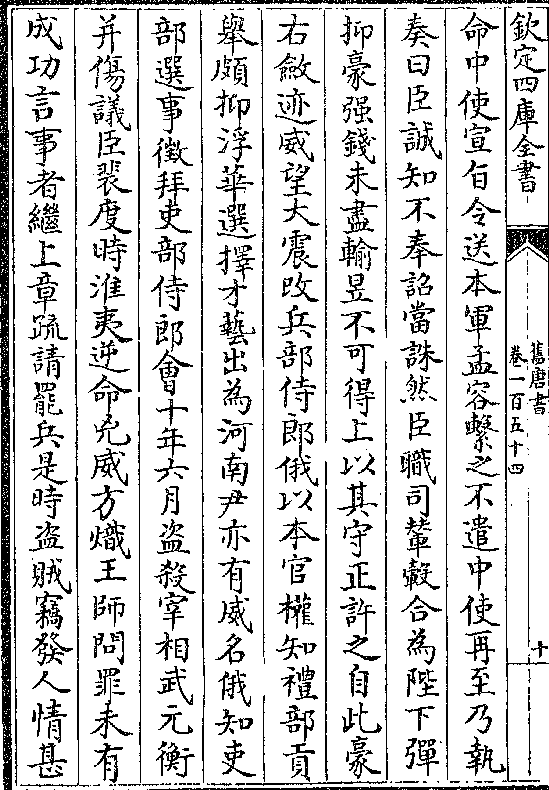 欽定四庫全書
舊唐書
卷一百五十四
十
命中使宣旨令送本軍孟容繫之不遣中使再至乃執
奏曰臣誠知不奉詔當誅然臣職司輦轂合為陛下彈
抑豪强錢未盡輸昱不可得上以其守正許之自此豪
右斂迹威望大震改兵部侍郎俄以本官權知禮部貢
舉頗抑浮華選擇才藝出為河南尹亦有威名俄知吏
部選事徵拜吏部侍郎會十年六月盜殺宰相武元衡
并傷議臣裴度時淮夷逆命兇威方熾王師問罪未有
成功言事者繼上章疏請罷兵是時盜賊竊發人情甚